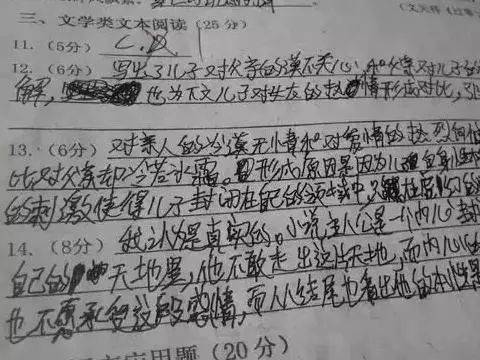 三、文学类文本阅读(25分)
11.(5分) C.D
12.(6分) 写出了儿子对父亲的漠不关心,和父亲对儿子的
解, 也为下文儿子对女友的热情形成对比,引
13.(6分) 对亲人的冷漠无情和对爱情的热烈
比对父亲却冷若冰霜。形成原因是因为儿子自身
的刺激使得儿子封闭在自己的领域中,
14.(8分) 我认为是真实的。小说主人公是一个内心封
自己的天地里,他不敢走出这片天地,而内心
也不愿承受这段感情,而从结尾也看出他的本性是
应用题(20分)